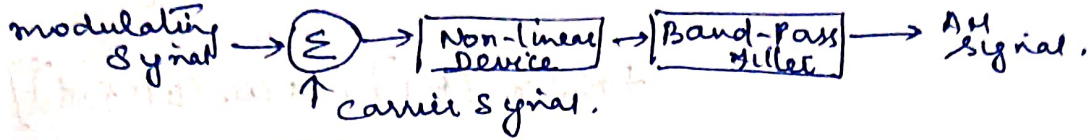 modulating
Signal
Σ
Non-linear
Device
Band-Pass
Filter
AM
Signal.
Carrier Signal.